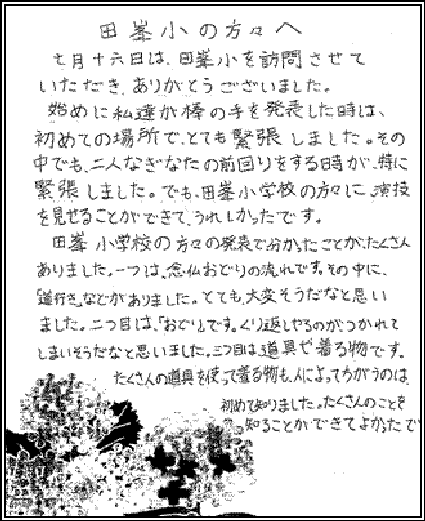 田峯小の方々へ
七月十六日は、田峯小を訪問させて
いただき、ありがとうございました。
始めに私達が棒の手を発表した時は、
初めての場所で、とても緊張しました。その
中でも、二人なぎなたの前回りをする時が、特に
緊張しました。でも、田峯小学校の方々に演技
を見せることができて、うれしかったです。
田峯小学校の方々の発表で分かったことが、たくさん
ありました。一つは、念仏おどりの流れです。その中に、
「道行き」などがありました。とても大変そうだなと思い
ました。二つ目は、「おどり」です。くり返しやるのがつかれて
しまいそうだなと思いました。三つ目は、道具や着る物です。
たくさんの道具を使って着る物も、人によってちがうのは、
初めて知りました。たくさんのことを
知ることができてよかったで